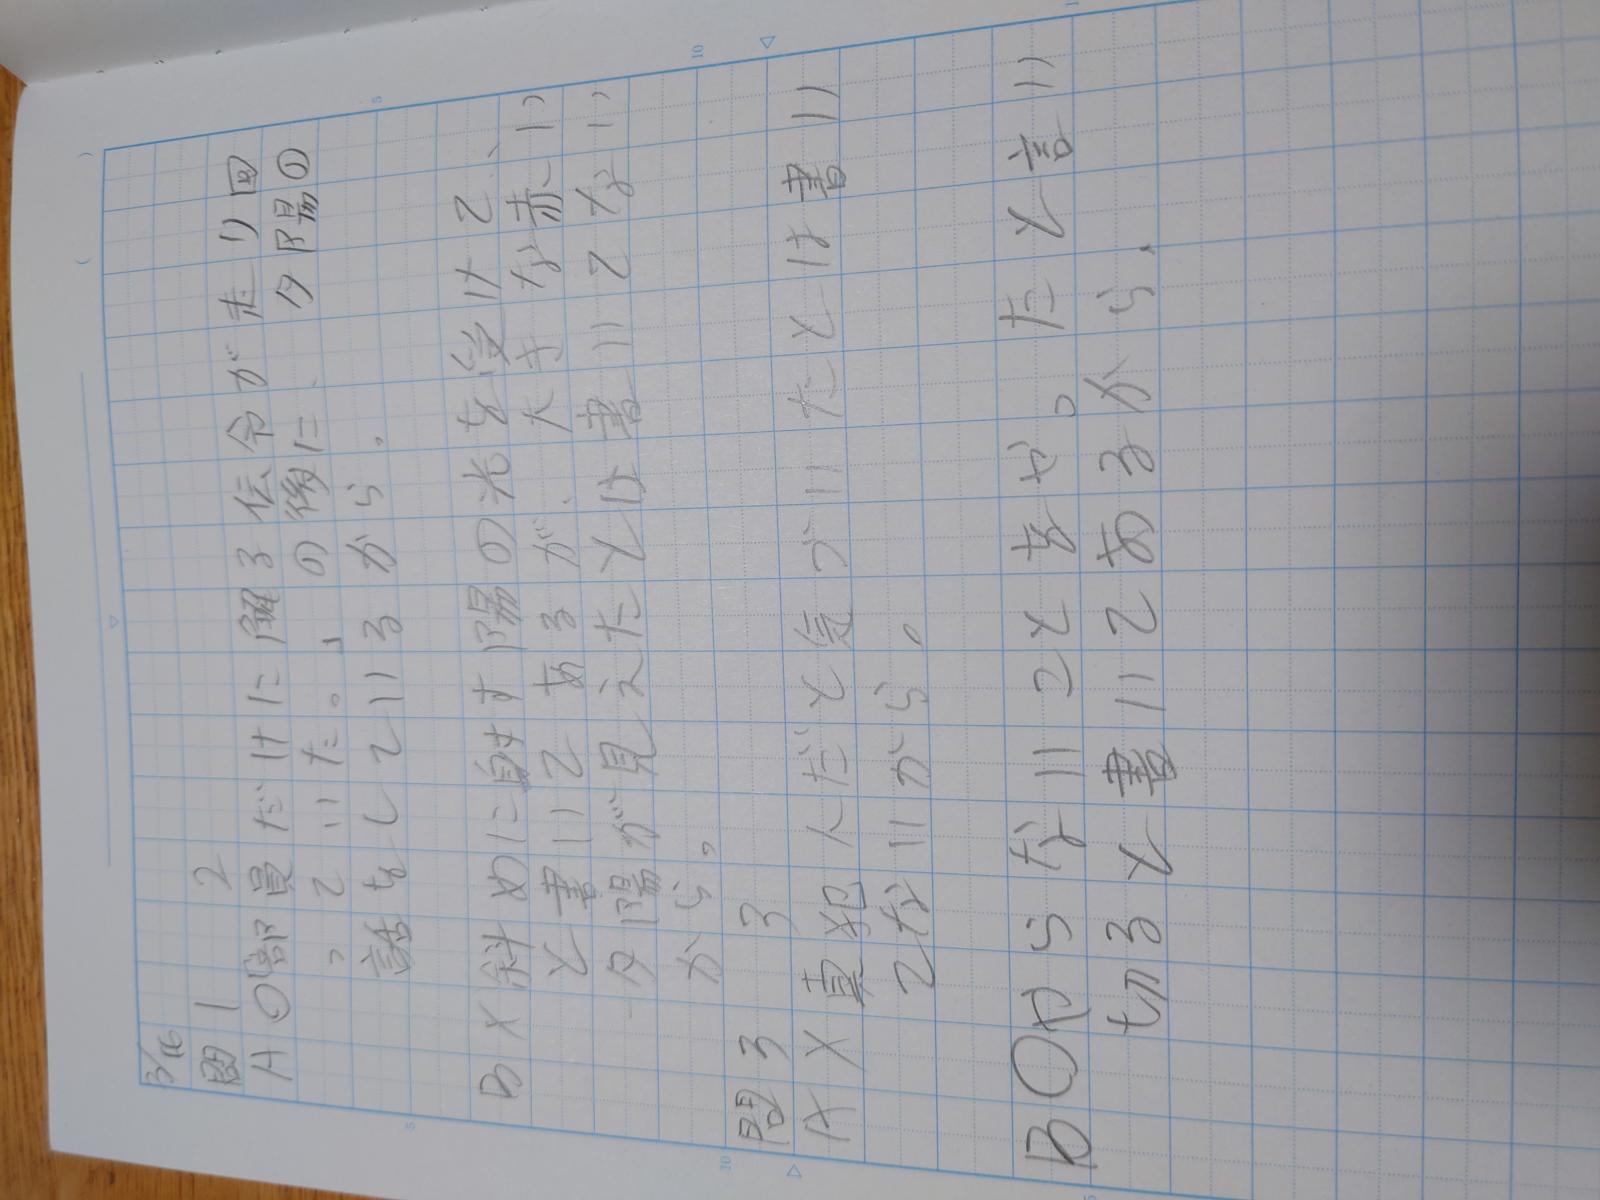 3/16
問1 2
A 〇部員だけに解る伝令がたり回
っていた。」の後に、夕陽の
話をしているから。
B ×斜めに射す陽の光を受けて、
と書いてあるが、大きな赤い
夕陽が見えたとは書いてない
から。
問3 3
A ×真犯人だと気づいたとは書い
てないから。
B 〇やらないことをやったと言い
切ると書いてあるから.